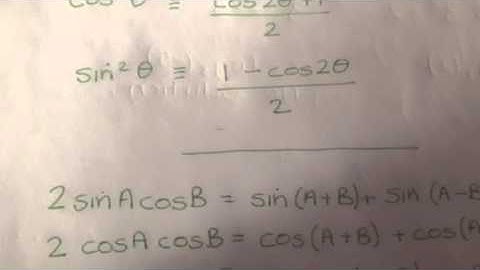 cos² θ ≡ cos2θ +1
2
sin² θ ≡ 1 - cos2θ
2
2 sinA cosB = sin(A+B)+ sin (A-B
2 cosA cosB = cos(A+B) + cos(A